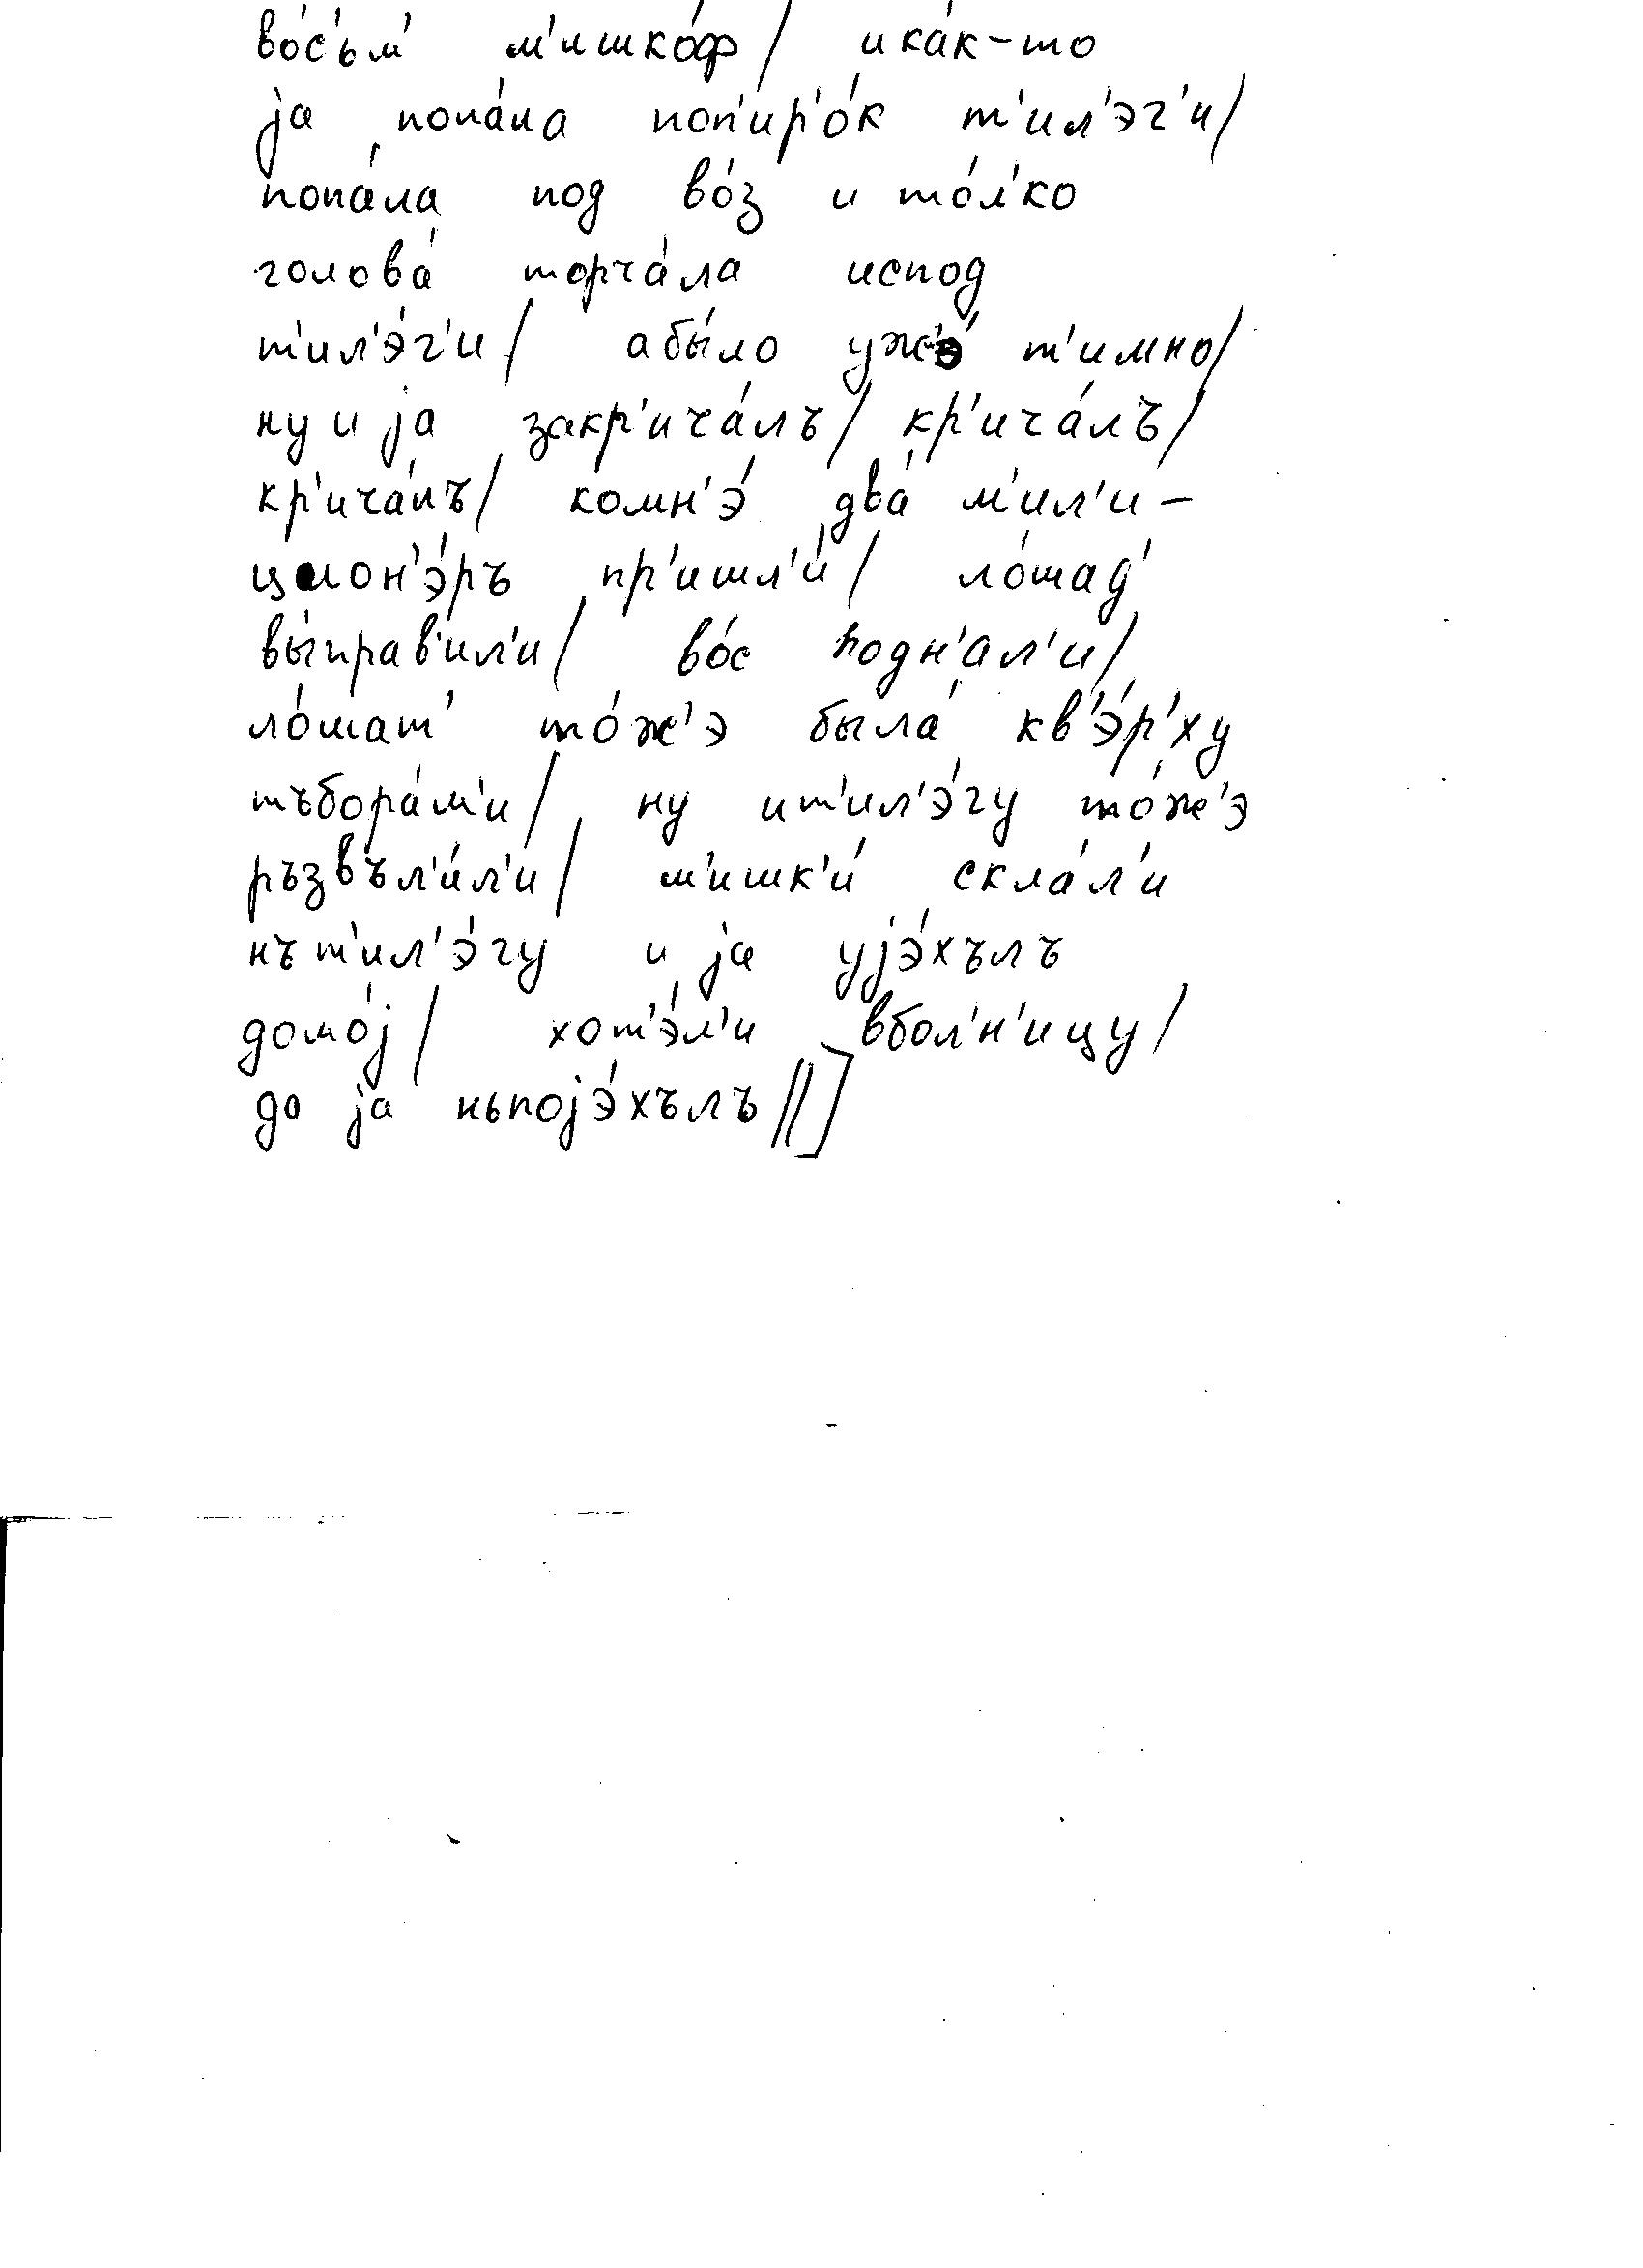 во́с'ьм' м'ишко́ф/ ика́к-то
jа попа́ла поп'ир'о́к т'ил'эг'и/
попа́ла под во́з и то́л'ко
голова́ торча́ла испод
т'ил'э́г'и/ абы́ло уж'э́ т'имно/
ну и jа закр'ича́лъ/ кр'ича́лъ/
кр'ича́лъ/ комн'э́ два́ м'ил'и-
цион'э́ръ пр'ишл'и́/ ло́шад'
вы́прав'ил'и/ во́с подн'ал'и/
ло́шат' то́ж'э была́ кв'э́р'ху
тъбора́м'и/ ну ит'ил'э́гу то́ж'э
ръзвъл'и́л'и/ м'ишк'и́ скла́л'и
нът'ил'э́гу и jа уjэ́хълъ
домо́j/ хот'э́л'и вбол'н'ицу/
да jа ньпоjэ́хълъ//]